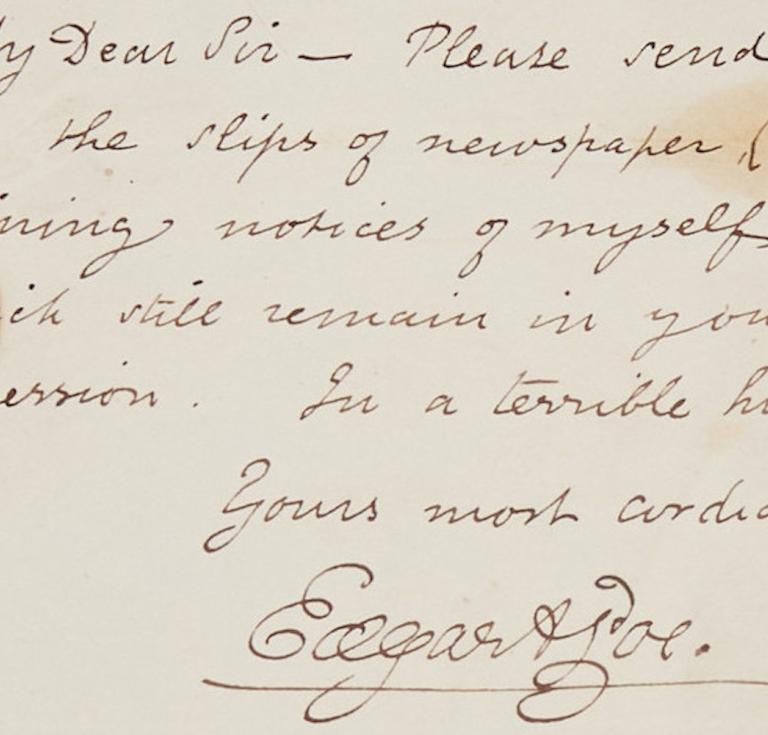 y Dear Sir — Please send
the slips of newspaper, (
ining notices of myself,
ich still remain in you
ession. In a terrible hu
Yours most cordia
Edgar A Poe.